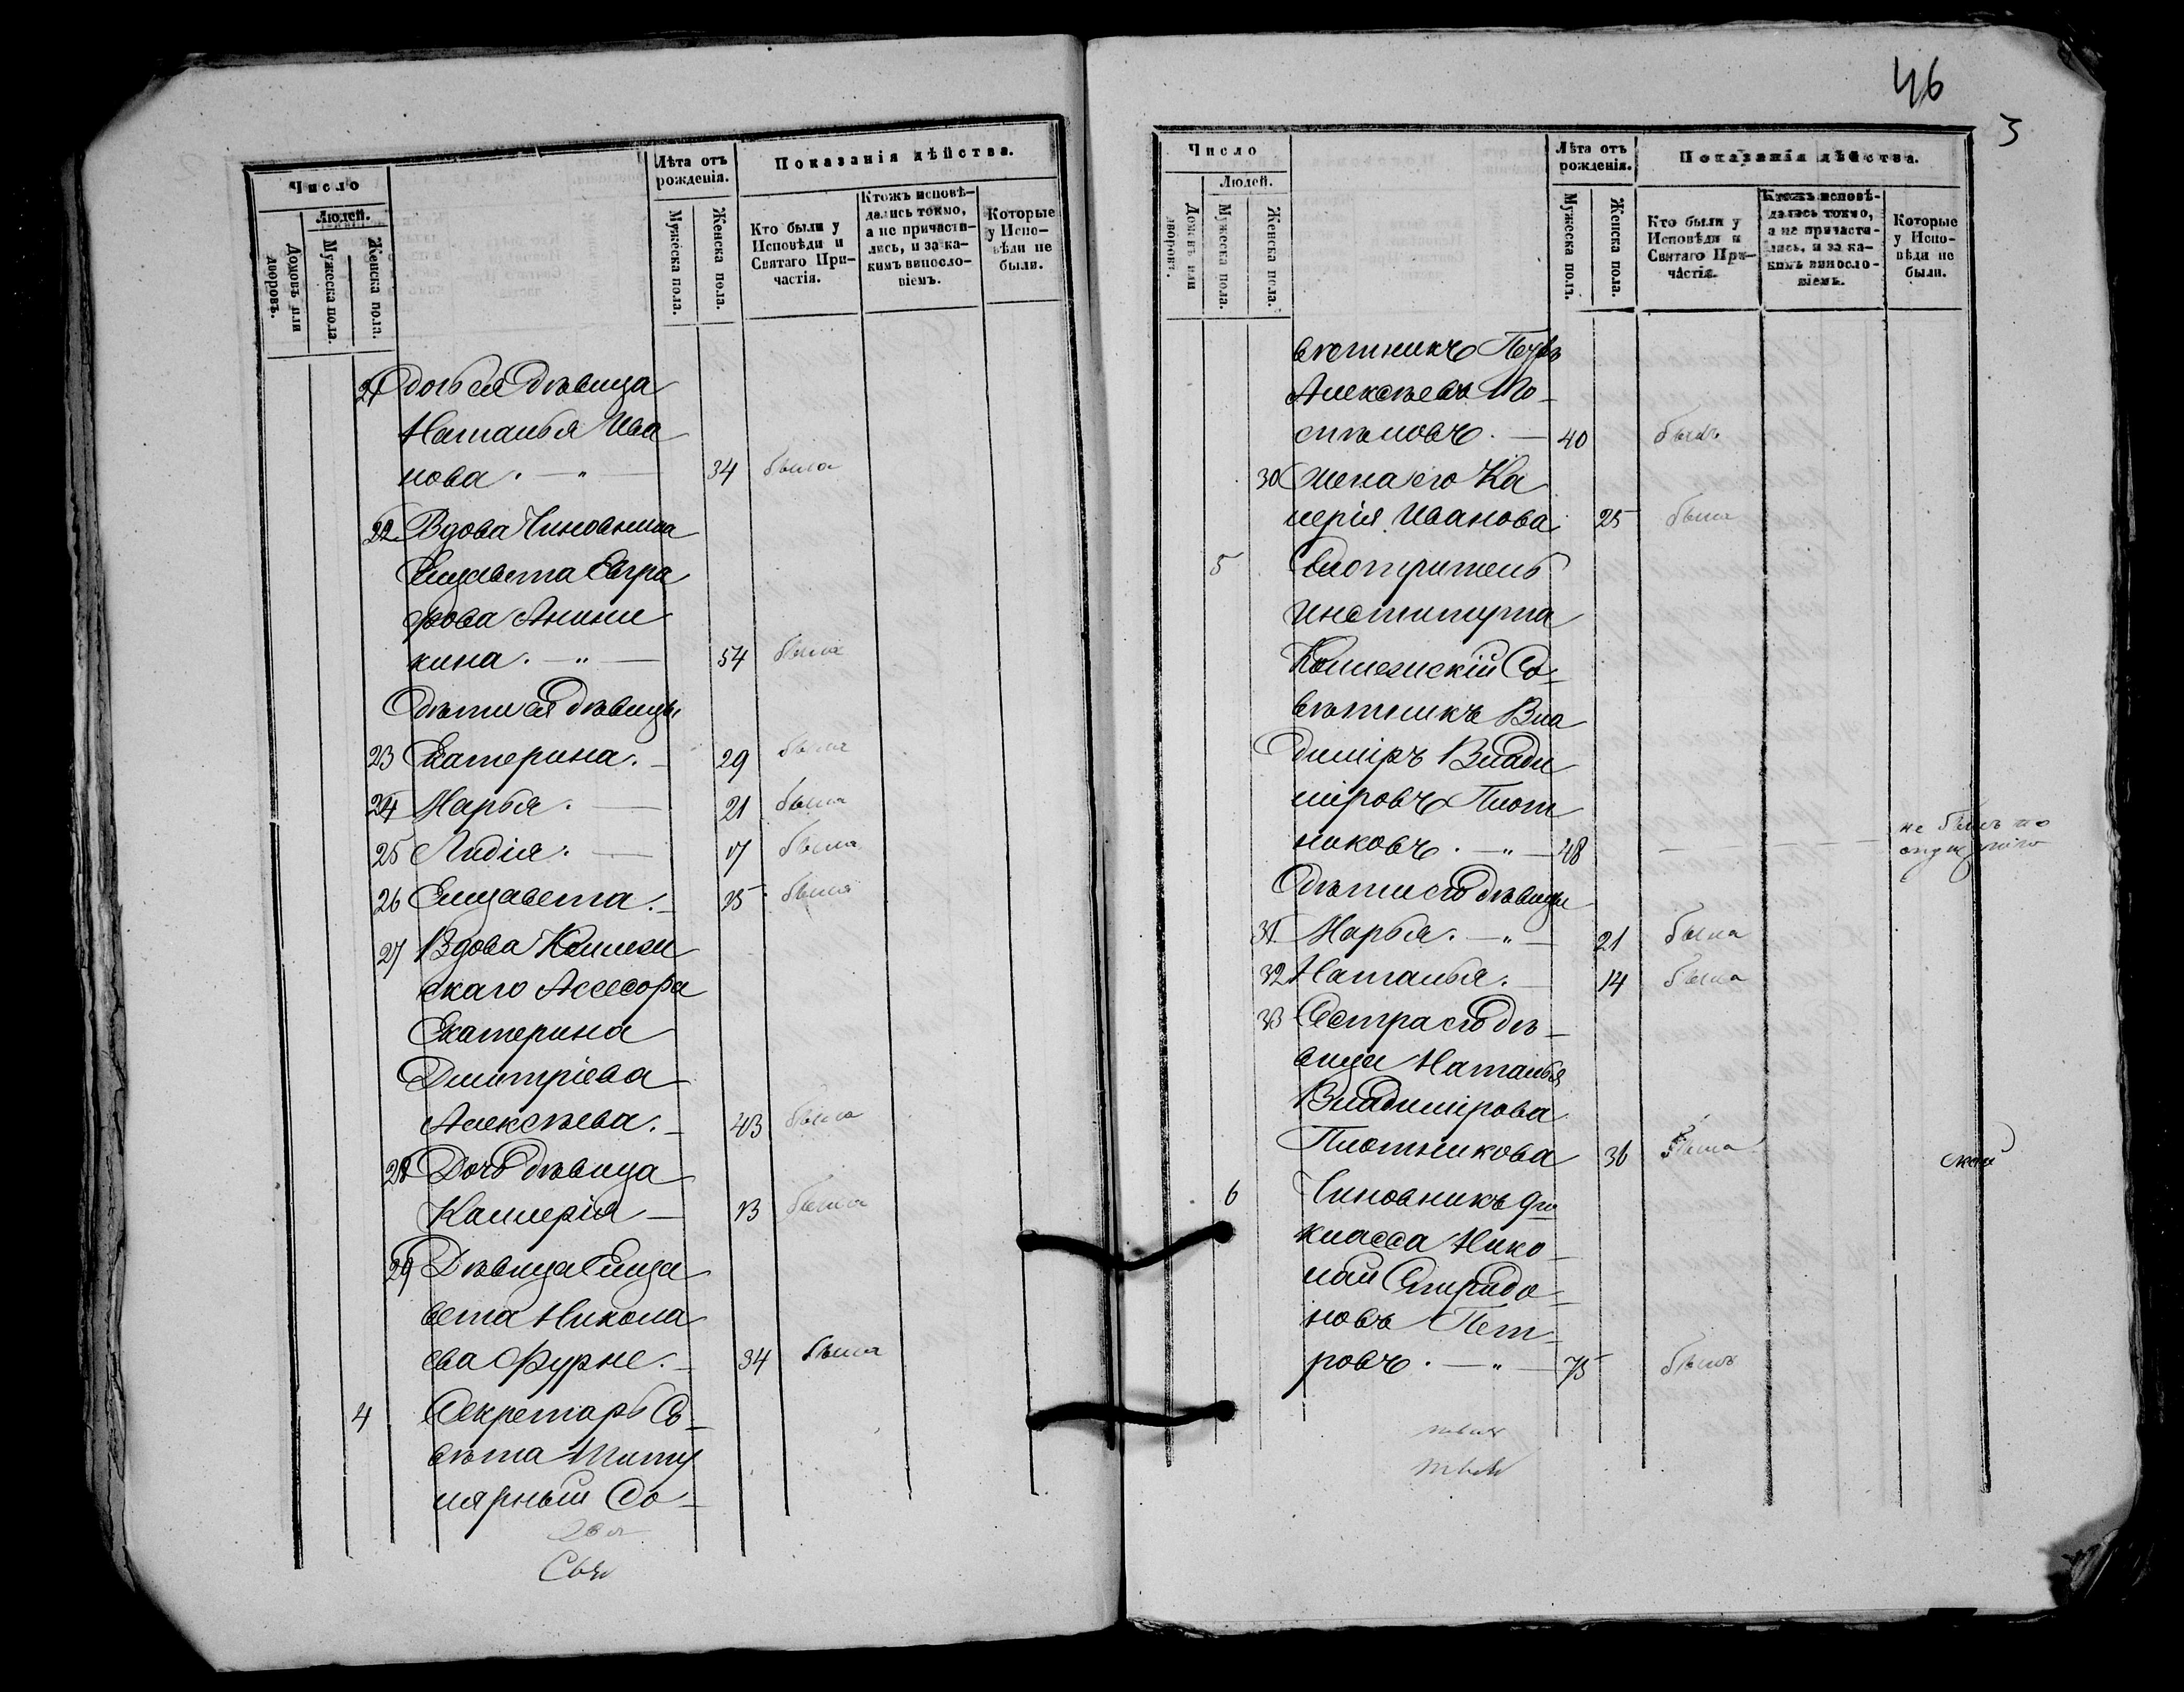 Число
Людей.
Домовъ или дворовъ.
Мужеска пола.
Женска пола.
Лѣта отъ рожденія.
Мужеска пола.
Женска пола.
Показанія дѣйства.
Кто были у Исповѣди и Святаго Причастія.
Ктожъ исповѣдались токмо, а не причастились, и за какимъ винословіемъ.
Которые у Исповѣди не были.
21 дочь ея дѣвица
Наталья Ива
нова. — " — 34 была
22 Вдова Чиновника
Елизавета Евгра
фова Аники
кина. — " — 54 была
дѣти ея дѣвицы
23 Екатерина. — 29 была
24 Марья. — 21 была
25 Лидія. — 17 была
26 Елизавета. — 15 была
27 Вдова Коллеж
скаго Ассесора
Екатерина
Дмитріева
Алексѣева. — 43 была
28 Дочь дѣвица
Калерія — 13 была
29 Дѣвица Елиза
вета Никола
ева Фурне. — 34 была
4 Секретарь Со-
вѣта Титу
лярный Со-
46
3
Число
Людей.
Домовъ или дворовъ.
Мужеска пола.
Женска пола.
Лѣта отъ рожденія.
Мужеска полъ.
Женска пола.
Показанія дѣйства.
Кто были у Исповѣди и Святаго Причастія.
Ктожъ исповѣдались токмо, а не причастились, и за какимъ винословіемъ.
Которые у Исповѣди не были.
вѣтникъ Петръ
Алексѣевъ
— 40 былъ
30 жена его Ка
лерія Иванова 25 была
5 Смотритель
Института
Коллежскій Со-
вѣтникъ Вла
диміръ Влади
міровъ Плот
никовъ. — " — 48 — — — не былъ по
дѣти его дѣвицы
31 Марья. — " — 21 была
32 Наталья. — 14 была
33 Сестра его дѣ-
вица Наталья
Владимірова
Плотникова 36 была
6 Чиновникъ 9го
класса Нико-
лай Спиридо-
новъ Пет-
ровъ. — " — 75 былъ